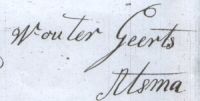 Wouter Geerts
Atsma